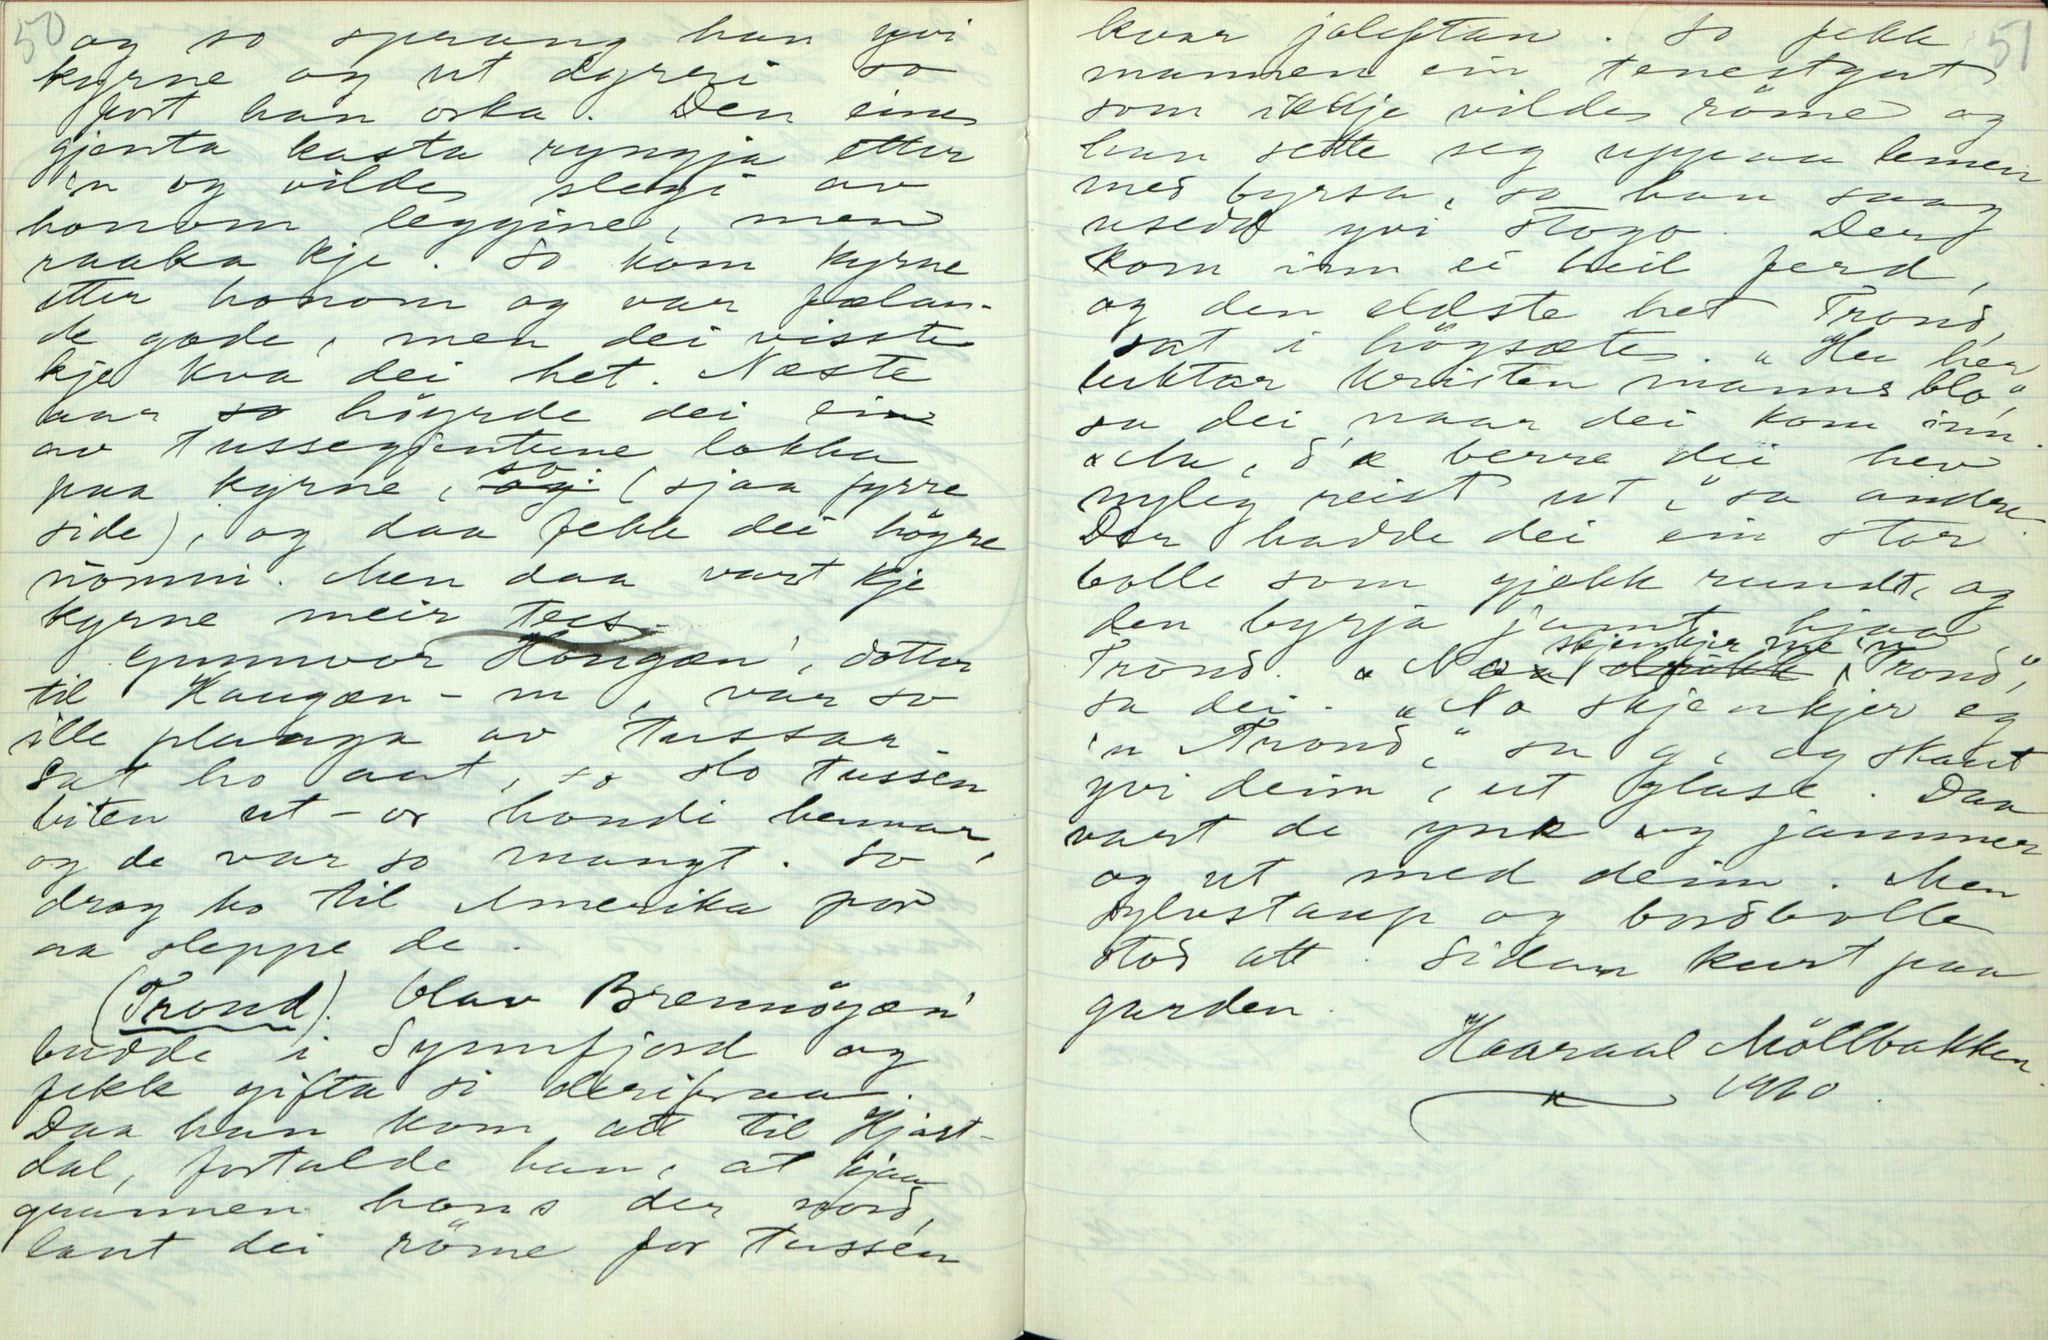 50
og so sprang han yvi
kyrne og ut dyreri so
fort han orka. Den eine
gjenta kasta ryngja etter
'n og vilde slegi av
honom leggine, men
raaka kje. So kom kyrne
etter honom og var fælan-
de gode, men dei visste
kje kva dei het. Næste
aar so höyrde dei ein
av tussegjentune lokka
paa kyrne, so og: (sjaa fyrre
side), og daa fekk dei höyre
nömni. Men daa vart kje
kyrne meir tus-
Gunnvor Haugæn', dotter
til Haugæn-n, var so
ille plaaga av tussar.
Sat ho aat, so slo tussen
biten ut-or hondi hennar,
og de var so mangt. So
drog ho til Amerika for
aa sleppe de.
(Trond). Olav Brennöyæn'
budde i Synnfjord og
fekk gifta si derifraa.
Daa han kom att til Hjart-
dal, fortalde han, at hjaa
grannen hans der nord,
laut dei röme for tussen
51
kvar jolaftan. So fekk
mannen ein tenestgut
som ikkje vilde röme og
han sette seg uppaa lemen
med byrsa, so han saag
usedd yvi stogo. Der
kom inn ei heil ferd,
og den eldste het Trond,
sat i högsæte. "Her her
luktar kristen manns blo,"
sa dei, naar dei kom inn.
"Aa, d'æ berre dei hev
nyleg reist ut," sa andre.
Der hadde dei ein stor
bolle som gjekk rundt, og
den byrja jamt hjaa
Trond. "No skjenkjer me 'n Trond,"
sa dei. "No skjenkjer eg
'n Trond," sa g, og skaut
yvi deim, ut glase. Daa
vart de ynk og jammer
og ut med deim. Men
sylvstaup og bordbolle
stod att. Sidan kurt paa
garden.
Haaraal Möllbakken.
1910.